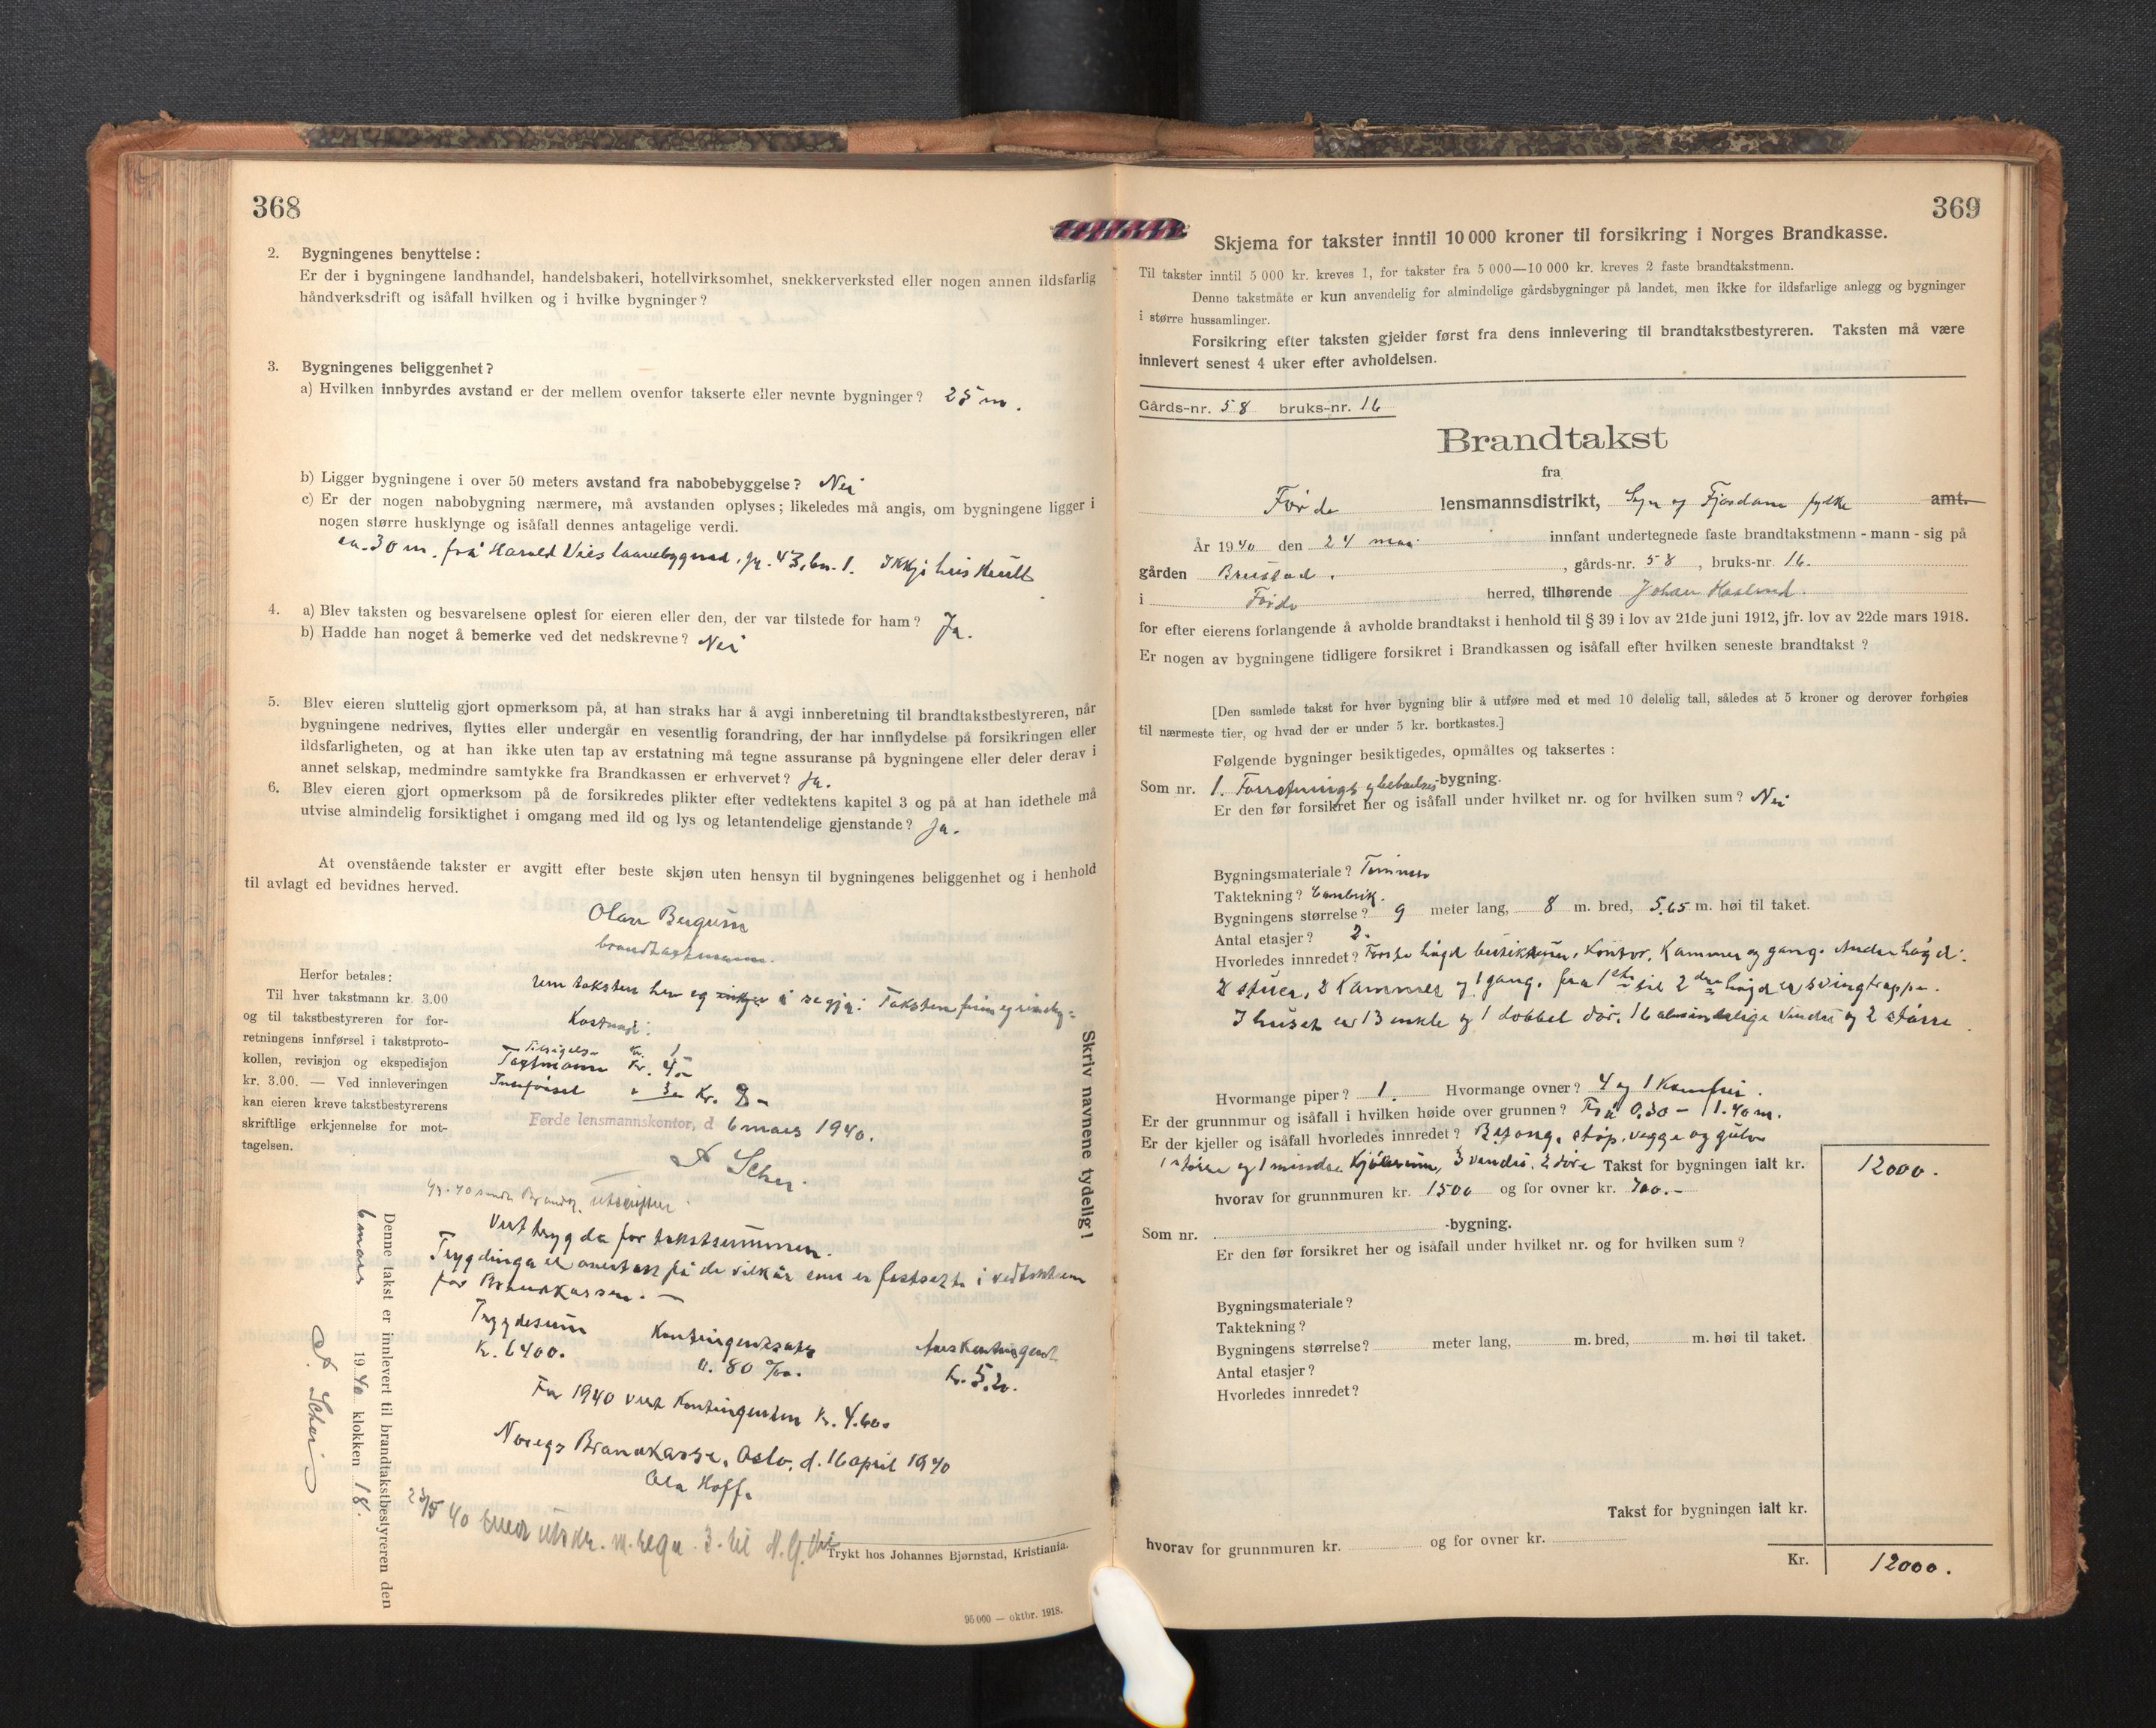 368
2. Bygningenes benyttelse:
Er der i bygningene landhandel, handelsbakeri, hotellvirksomhet, snekkerverksted eller nogen annen ildsfarlig
håndverksdrift og isåfall hvilken og i hvilke bygninger?
3. Bygningenes beliggenhet?
a) Hvilken innbyrdes avstand er der mellem ovenfor takserte eller nevnte bygninger? 25 m.
b) Ligger bygningene i over 50 meters avstand fra nabobebyggelse? Nei
c) Er der nogen nabobygning nærmere, må avstanden oplyses; likeledes må angis, om bygningene ligger i
nogen større husklynge og isåfall dennes antagelige verdi.
ca. 30 m. frå Harald Vies laavebygnad, gr. 43, bn. 1. Ikkje hus
4. a) Blev taksten og besvarelsene oplest for eieren eller den, der var tilstede for ham? Ja.
b) Hadde han noget å bemerke ved det nedskrevne? Nei
5. Blev eieren sluttelig gjort opmerksom på, at han straks har å avgi innberetning til brandtakstbestyreren, når
bygningene nedrives, flyttes eller undergår en vesentlig forandring, der har innflydelse på forsikringen eller
ildsfarligheten, og at han ikke uten tap av erstatning må tegne assuranse på bygningene eller deler derav i
annet selskap, medmindre samtykke fra Brandkassen er erhvervet? Ja.
6. Blev eieren gjort opmerksom på de forsikredes plikter efter vedtektens kapitel 3 og på at han idethele må
utvise almindelig forsiktighet i omgang med ild og lys og letantendelige gjenstande? Ja.
At ovenstående takster er avgitt efter beste skjøn uten hensyn til bygningenes beliggenhet og i henhold
til avlagt ed bevidnes herved.
Olav Bergum
brandtakstmann.
Herfor betales:
Til hver takstmann kr. 3.00
og til takstbestyreren for for-
retningens innførsel i takstproto-
kollen, revisjon og ekspedisjon
kr. 3.00. — Ved innleveringen
kan eieren kreve takstbestyrerens
skriftlige erkjennelse for mot-
tagelsen.
um taksten har eg å segja: Taksten finn eg
Kostnad:
Tilsigelse Kr. 1
Takstmann Kr. 4.-
Innførsel " 3.- Kr. 8.-
Førde lensmannskontor, d 6 mars 1940.
A Schei
Skriv navnene tydelig!
Vert trygda for takstsummen.
Trygdinga er overteke på dei vilkår som er fastsett i vedtektene
for Brandkassen. —
Trygdesum Kontingentsats Årskontingent
Kr. 6400. 0.80 ‰. Kr. 5.20.
For 1940 vert kontingenten Kr. 4.60.
Noregs Brandkasse, Oslo, d. 16 april 1940
Ola Hoff.
Denne takst er innlevert til brandtakstbestyreren den
6 mars 1940 klokken 18.
A Schei
23/5 40 utskr. m. regn. 3. til
Trykt hos Johannes Bjørnstad, Kristiania.
95 000 — oktbr. 1918.
369
Skjema for takster inntil 10 000 kroner til forsikring i Norges Brandkasse.
Til takster inntil 5 000 kr. kreves 1, for takster fra 5 000—10 000 kr. kreves 2 faste brandtakstmenn.
Denne takstmåte er kun anvendelig for almindelige gårdsbygninger på landet, men ikke for ildsfarlige anlegg og bygninger
i større hussamlinger.
Forsikring efter taksten gjelder først fra dens innlevering til brandtakstbestyreren. Taksten må være
innlevert senest 4 uker efter avholdelsen.
Gårds-nr. 58 bruks-nr. 16
Brandtakst
fra
Førde lensmannsdistrikt, Sogn og Fjordane fylke amt.
År 1940 den 24 mai innfant undertegnede faste brandtakstmenn - mann - sig på
gården Brustad, gårds-nr. 58, bruks-nr. 16.
i Førde herred, tilhørende Johan Haaland.
for efter eierens forlangende å avholde brandtakst i henhold til § 39 i lov av 21de juni 1912, jfr. lov av 22de mars 1918.
Er nogen av bygningene tidligere forsikret i Brandkassen og isåfall efter hvilken seneste brandtakst?
[Den samlede takst for hver bygning blir å utføre med et med 10 delelig tall, således at 5 kroner og derover forhøies
til nærmeste tier, og hvad der er under 5 kr. bortkastes.]
Følgende bygninger besiktigedes, opmåltes og taksertes:
Som nr. 1. Forretnings og bebuelses-bygning.
Er den før forsikret her og isåfall under hvilket nr. og for hvilken sum? Nei
Bygningsmateriale? Tømmer
Taktekning?
Bygningens størrelse? 9 meter lang, 8 m. bred, 5,65 m. høi til taket.
Antal etasjer? 2.
Hvorledes innredet? Første høgd butikkrum, kontor, kammer og gang. Andre høgd:
2 stuer, 2 kammer og 1 gang. frå 1ste til 2dre høgd er svingtrapp.
I huset er 13 enkle og 1 dobbel dør. 16 almindelige vindu og 2 større.
Hvormange piper? 1. Hvormange ovner? 4 og 1 komfyr.
Er der grunnmur og isåfall i hvilken høide over grunnen? Frå 0,30 - 1.40 m.
Er der kjeller og isåfall hvorledes innredet? Betong, støp. vegge og gulv
1 større og 1 mindre kjellerrum, 3 vindu, 2 døre Takst for bygningen ialt kr. 12000.
hvorav for grunnmuren kr. 1500 og for ovner kr. 700.-
Som nr. -bygning.
Er den før forsikret her og isåfall under hvilket nr. og for hvilken sum?
Bygningsmateriale?
Taktekning?
Bygningens størrelse? meter lang, m. bred, m. høi til taket.
Antal etasjer?
Hvorledes innredet?
Takst for bygningen ialt kr.
hvorav for grunnmuren kr. og for ovner kr.
Kr. 12000.